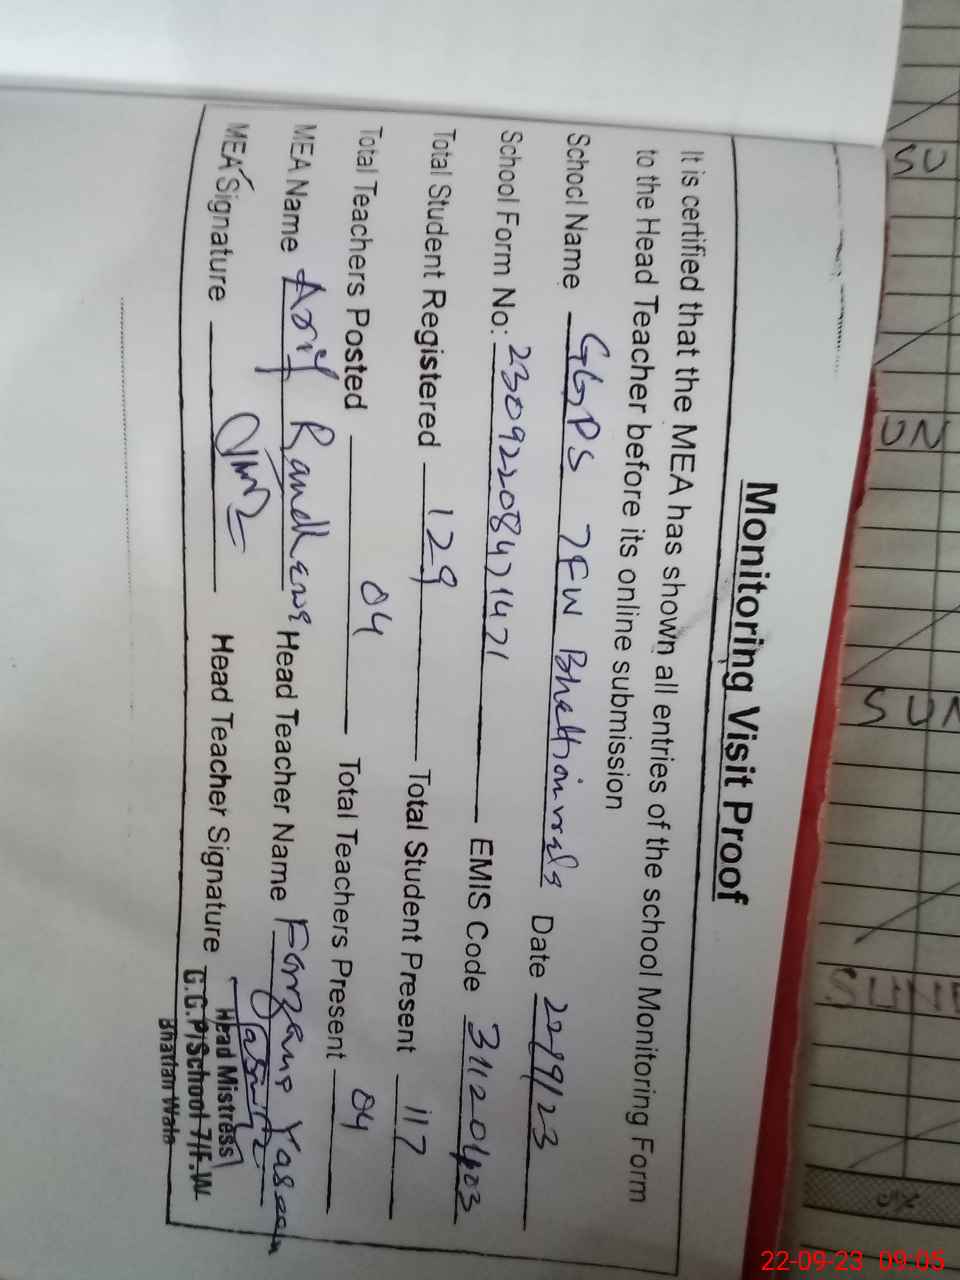 Monitoring Visit Proof
It is certified that the MEA has shown all entries of the school Monitoring Form
to the Head Teacher before its online submission
School Name GGPS 7FW Date 22/9/23
School Form No: 23092208471471 EMIS Code 31120403
Total Student Registered 129 Total Student Present 117
Total Teachers Posted 04 Total Teachers Present 04
MEA Name Head Teacher Name Yaseen
MEA Signature Head Teacher Signature
Head Mistress
G.G.P/School 7/F.W
Bhattan Wala
SUN
SUNE
22-09-23 09:05